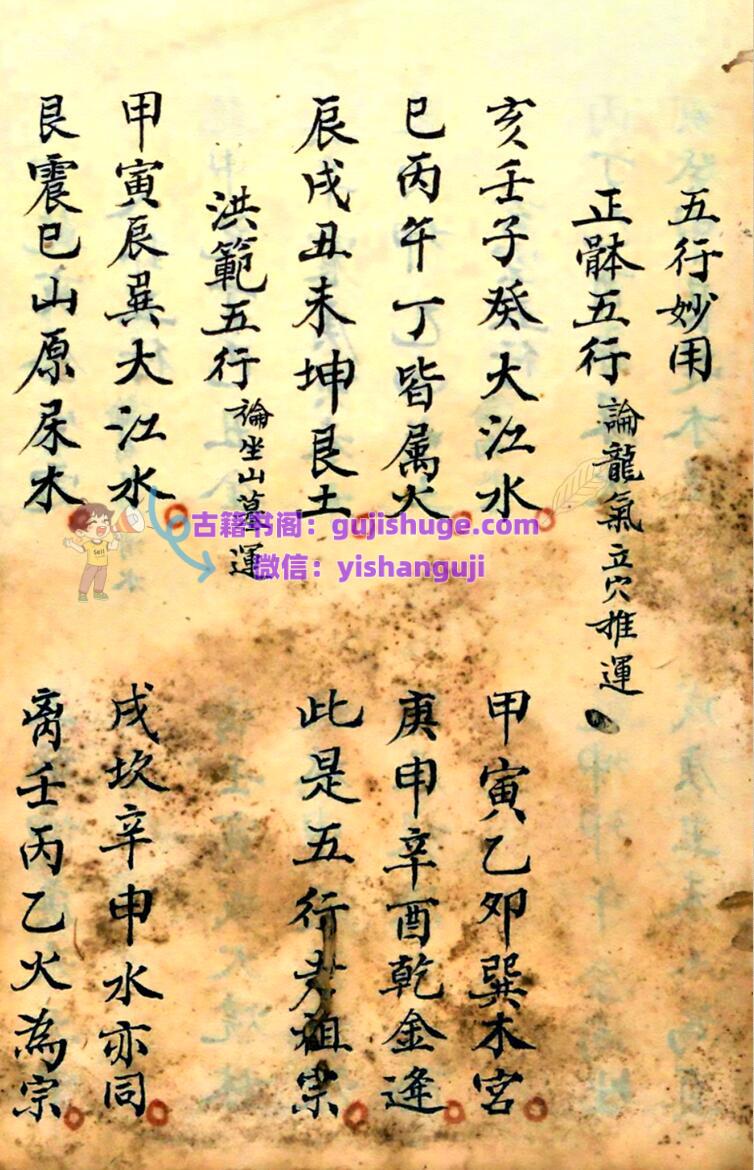 五行妙用
正骵五行 論龍氣立穴推運
亥壬子癸大江水 甲寅乙卯巽木宮
巳丙午丁皆属火 庚申辛酉乾金逢
辰戌丑未坤艮土 此是五行老祖宗
洪範五行 論坐山墓運
甲寅辰巽大江水 戌坎辛申水亦同
艮震巳山原屎木 离壬丙乙火為宗
古籍书阁：gujishuge.com
微信：yishanguji